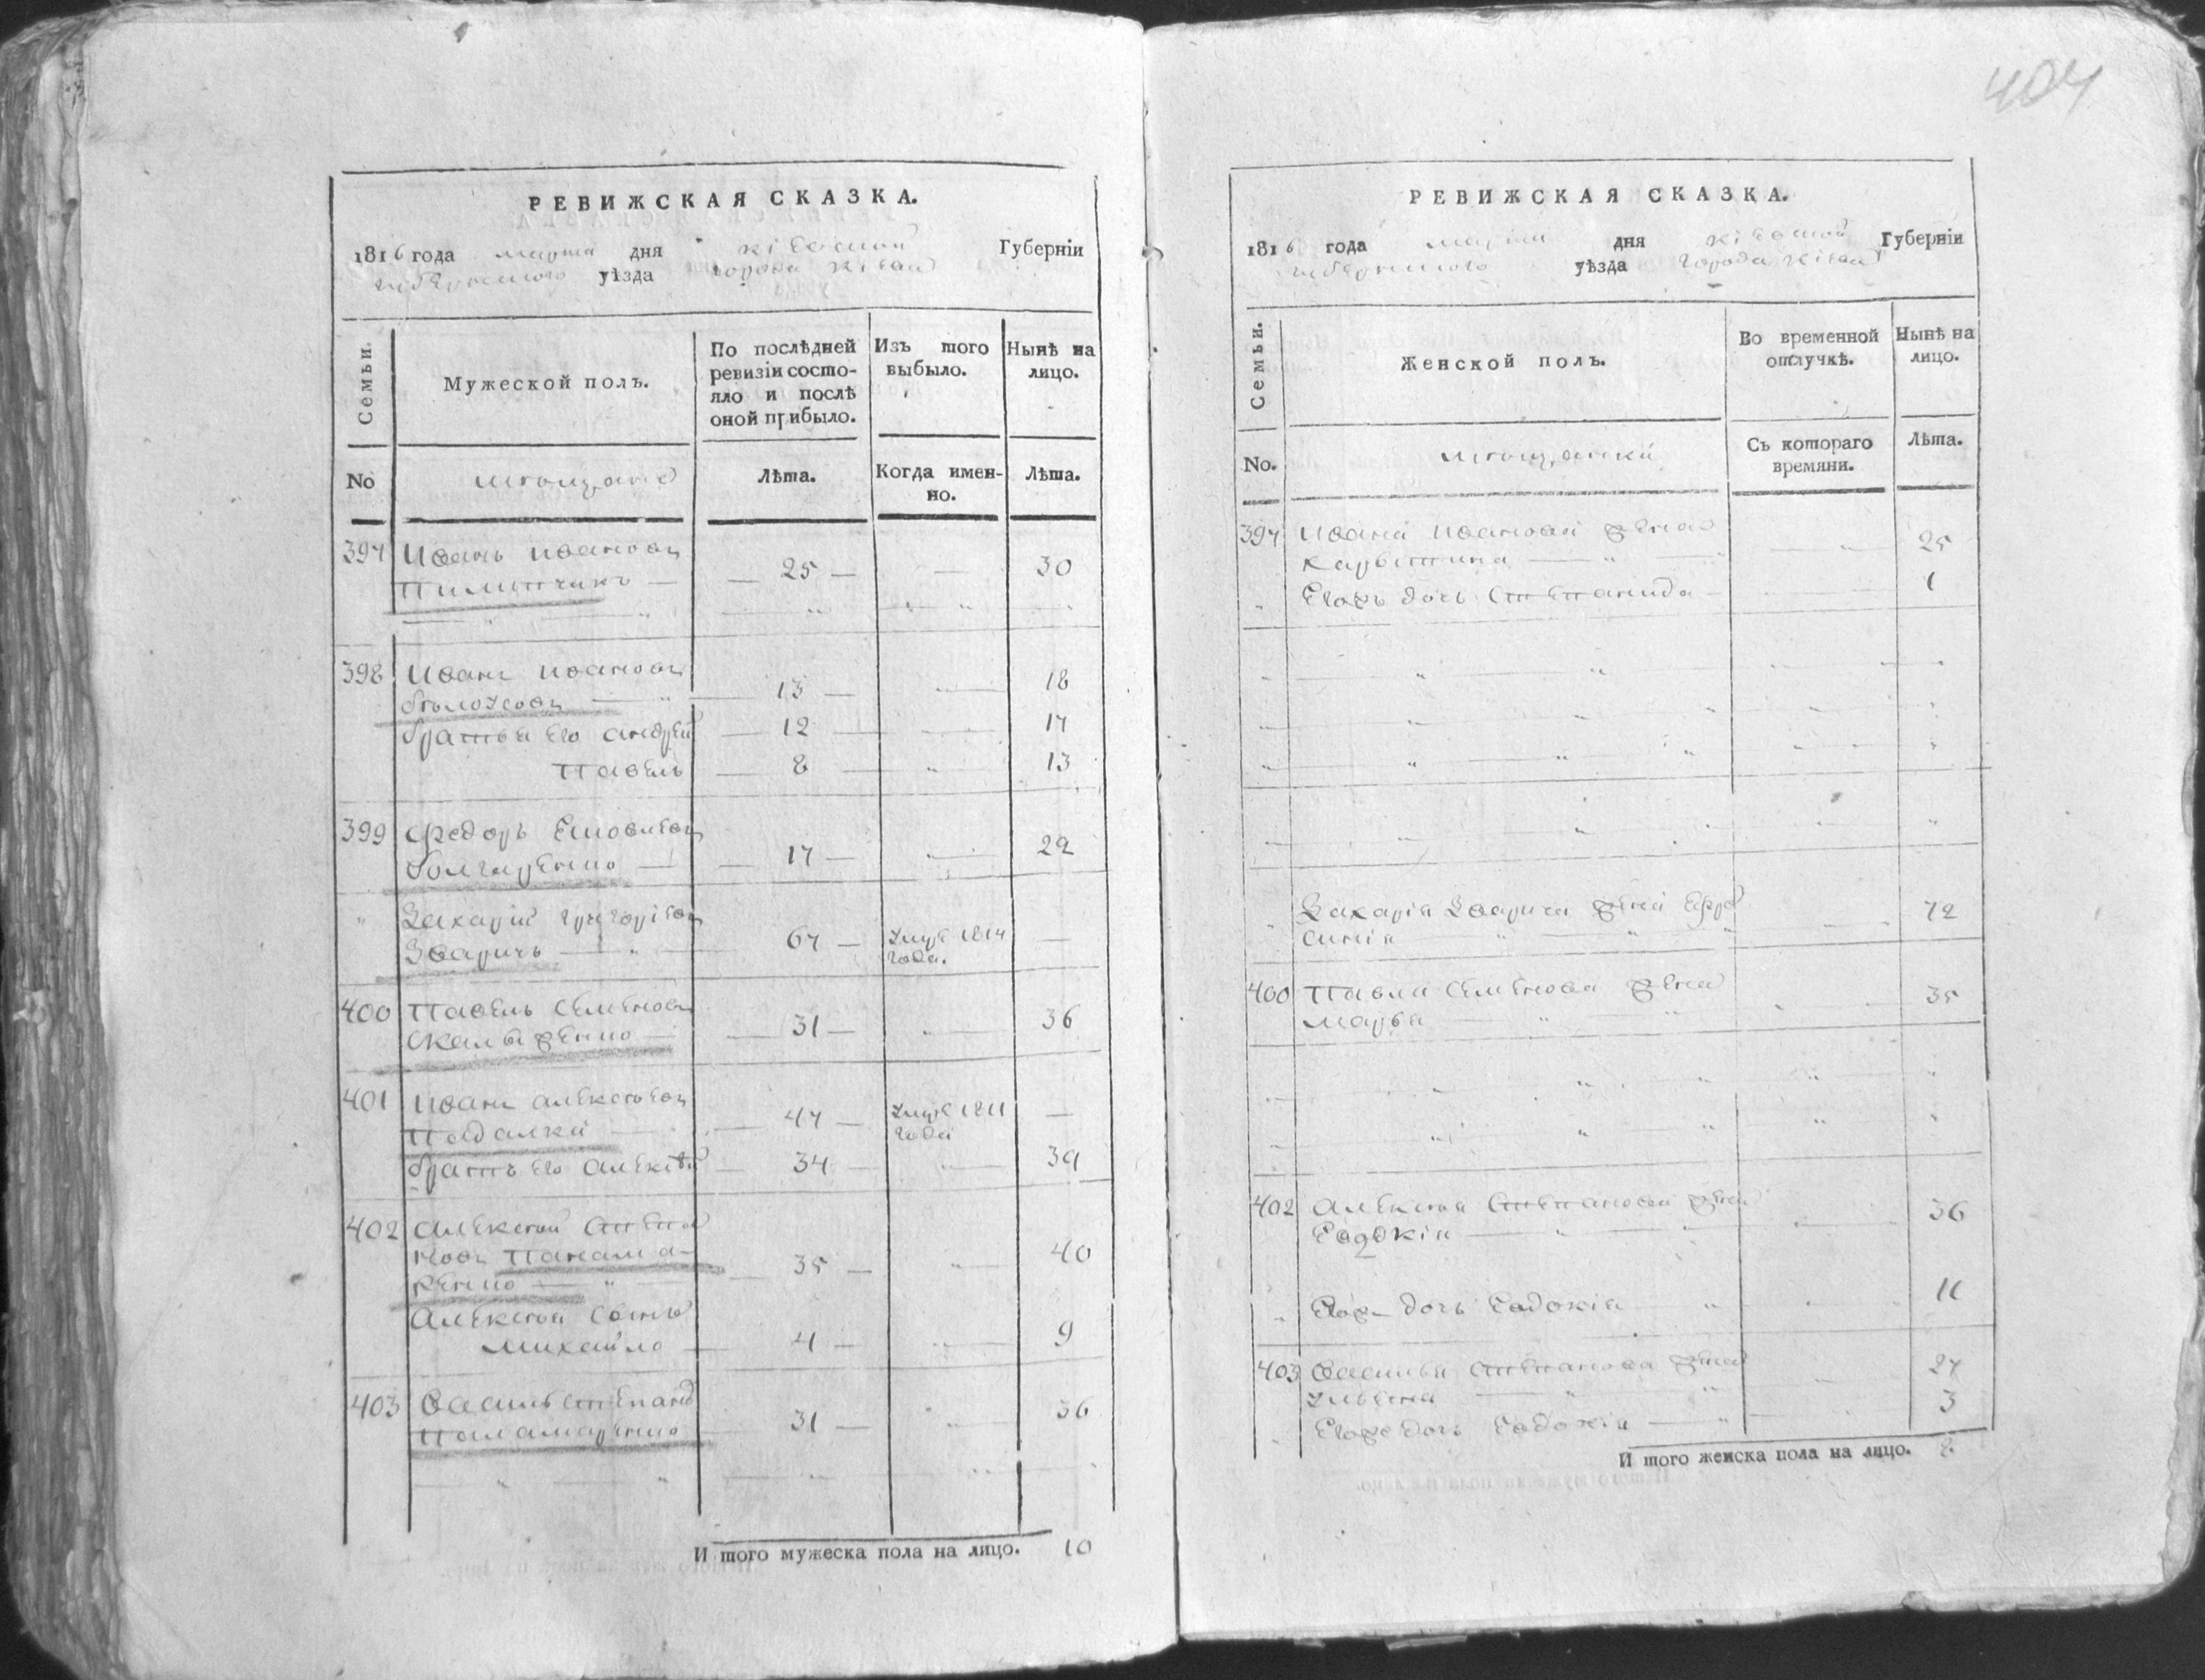 404
РЕВИЖСКАЯ СКАЗКА.
1816 года марта дня кіевской Губерніи
губернского уѣзда города Кіева
Семьи.
Мужеской полъ.
По послѣдней ревизіи состояло и послѣ оной прибыло.
Изъ того выбыло.
Нынѣ на лицо.
No
мещане
Лѣта.
Когда именно.
Лѣта.
397 Иванъ Ивановъ
Пилипчикъ — 25 — 30
398 Иванъ Ивановъ
бѣлоусовъ 13 — 18
братья его андрей 12 17
Павелъ 8 13
399 Федоръ
болгаренко 17 — 22
Захарій григоріевъ
Зваричъ 67 — умре 1814 года. —
400 Павелъ Семеновъ
31 — 36
401 Иванъ алексѣевъ
Подалка 47 — умре 1811 года —
братъ его алексѣй 34 39
402 алексѣй Степа
новъ Панама-
ренко 35 — 40
Алексѣя сынъ
михайло 4 — 9
403 Василь степанов
Паламаренко 31 — 36
И того мужеска пола на лицо. 10
РЕВИЖСКАЯ СКАЗКА.
1816 года марта дня кіевской Губерніи
губернского уѣзда города Кіева
Семьи.
Женской полъ.
Во временной отлучкѣ.
Нынѣ на лицо.
No.
мещанки
Съ котораго времяни.
Лѣта.
397 Ивана Иванова жена
25
Егожъ дочь Степанида 1
Захарія Зварича жена Ефро
синія 72
400 Павла Семенова жена
Марья 35
402 Алексѣя Степанова жена
Евдокія 36
Егож дочь Евдокія 11
403 Василья степанова жена
Ульяна 27
Егоже дочь Евдокія 3
И того женска пола на лицо. 8